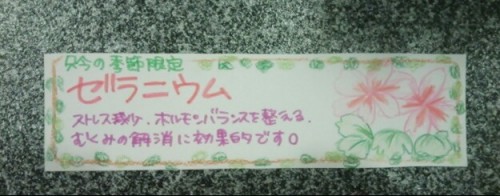 只今の季節限定
ゼラニウム
ストレス減少、ホルモンバランスを整える、
むくみの解消に効果的です。